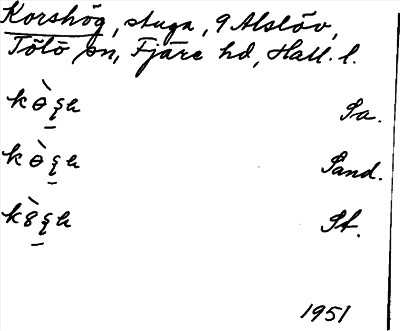 Korshög, stuga, 9 Alslöv,
Tölö sn, Fjäre hd, Hall. l.
Sa.
Sand.
St.
1951